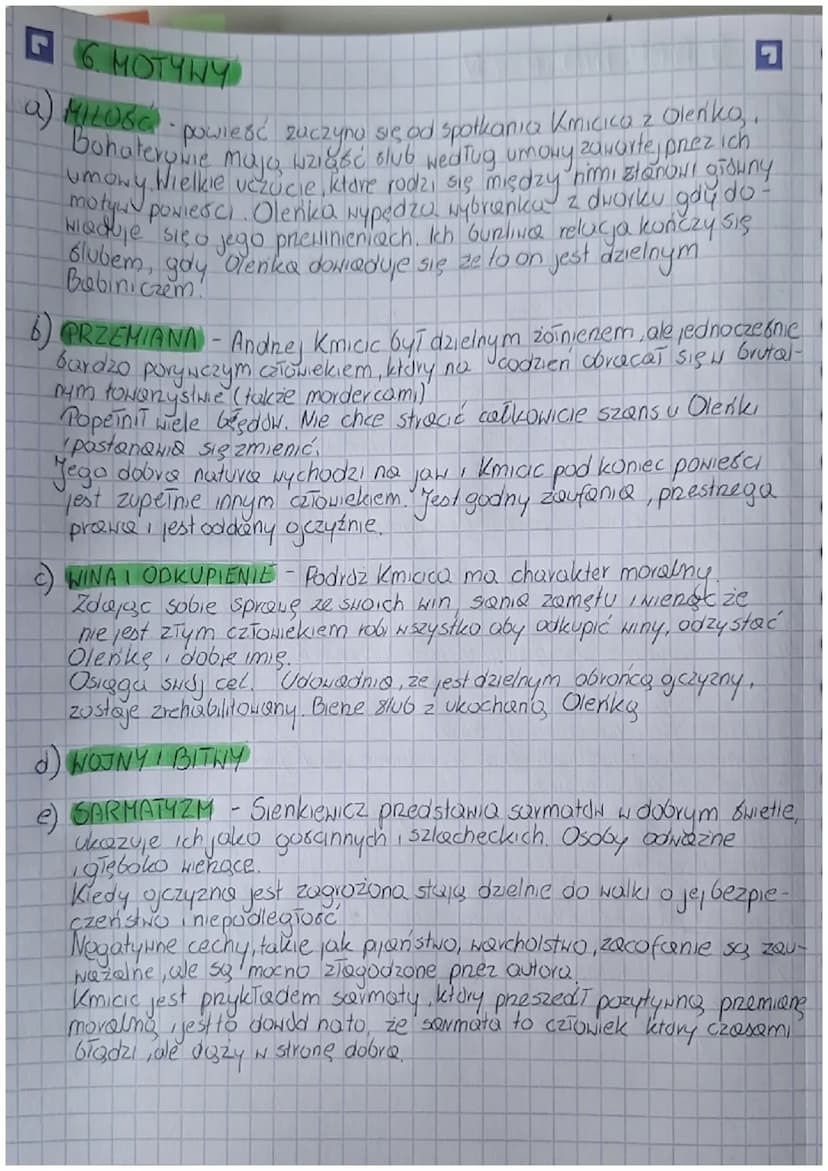 6. MOTYWY
a) MIŁOŚĆ - powieść zaczyna się od spotkania Kmicica z Oleńką.
Bohaterowie mają wziąść ślub według umowy zawartej przez ich
umowy. Wielkie uczucie, które rodzi się między nimi stanowi główny
motyw powieści. Oleńka wypędza wybranka z dworku gdy do-
wiaduje się o jego przewinieniach. Ich burzliwa relacja kończy się
ślubem, gdy Oleńka dowiaduje się że to on jest dzielnym
Babiniczem.
b) PRZEMIANA - Andrzej Kmicic był dzielnym żołnierzem, ale jednocześnie
bardzo porywczym człowiekiem, który na codzień obracał się w brutal-
nym towarzystwie (także mordercami)
Popełnił wiele błędów. Nie chce stracić całkowicie szans u Oleńki
i postanawia się zmienić.
Jego dobra natura wychodzi na jaw i Kmicic pod koniec powieści
jest zupełnie innym człowiekiem. Jest godny zaufania, przestrzega
prawa i jest oddany ojczyźnie.
c) WINA I ODKUPIENIE - Podróż Kmicica ma charakter moralny.
Zdając sobie sprawę ze swoich win, siania zamętu i wierząc że
nie jest złym człowiekiem robi wszystko aby odkupić winy, odzystać
Oleńkę i dobre imię.
Osiąga swój cel. Udowadnia, że jest dzielnym obrońcą ojczyzny,
zostaje zrehabilitowany. Bierze ślub z ukochaną Oleńką
d) WOJNY I BITWY
e) SARMATYZM - Sienkiewicz przedstawia sarmatów w dobrym świetle,
ukazuje ich jako gościnnych i szlacheckich. Osoby odważne
i głęboko wierzące.
Kiedy ojczyzna jest zagrożona stają dzielnie do walki o jej bezpie-
czeństwo i niepodległość
Negatywne cechy, takie jak pijaństwo, warcholstwo, zacofanie są zau-
ważalne, ale są mocno złagodzone przez autora.
Kmicic jest przykładem sarmaty, który przeszedł pozytywną przemianę
moralną, jest to dowód na to, że sarmata to człowiek który czasami
błądzi, ale dąży w stronę dobra.